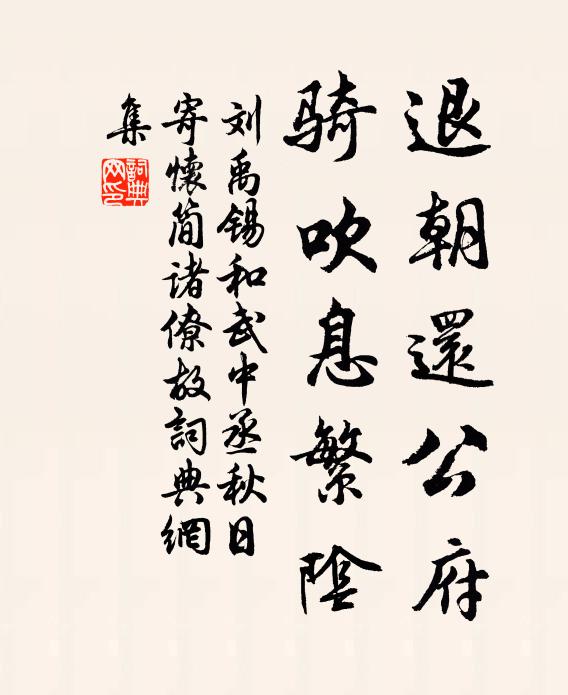 退朝還公府
骑吹息繁陰
刘禹锡和武中丞秋日
寄懷简诸僚故詞典網
集
詞典網印